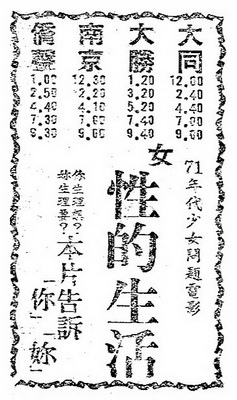 大同
12.00
2.40
4.40
7.00
9.00
大勝
1.20
3.20
5.20
7.40
9.40
南京
12.30
4.10
7.00
9.00
僑聲
1.00
2.50
4.40
7.30
9.30
71年代少女問題電影
女性的生活
本片告訴
「你」「妳」